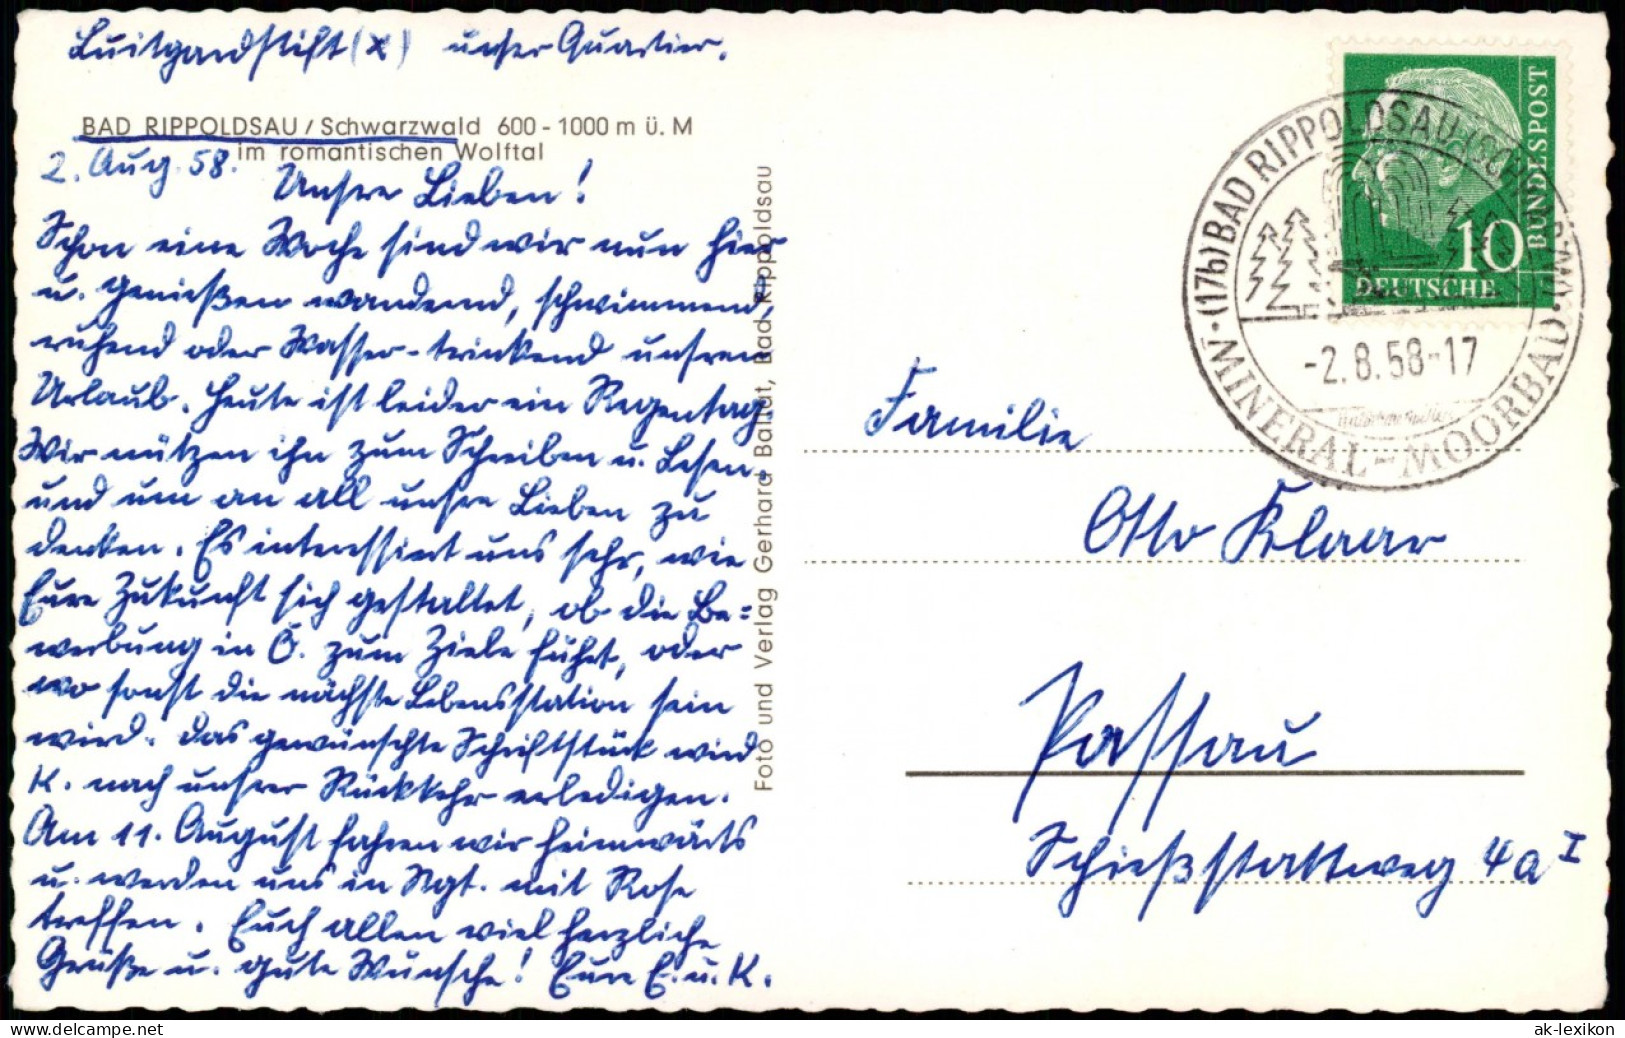 Luitgardstift (x) unser Quartier.
BAD RIPPOLDSAU / Schwarzwald 600 - 1000 m ü. M
im romantischen Wolftal
2. Aug. 58.
Unsre Lieben!
Schon eine Woche sind wir nun hier
u. genießen wandernd, schwimmend,
ruhend oder Wasser-trinkend unsren
Urlaub. Heute ist leider ein Regentag.
Wir nützen ihn zum Schreiben u. Lesen
und um an all unsre Lieben zu
denken. Es interessiert uns sehr, wie
Eure Zukunft sich gestaltet, ob die Be=
werbung in Ö. zum Ziele führt, oder
wo sonst die nächste Lebensstation sein
wird. Das gewünschte Schriftstück wird
K. nach unsrer Rückkehr erledigen.
Am 11. August fahren wir heimwärts
u. werden uns in Rgt. mit Rose
treffen. Euch allen viel herzliche
Grüße u. gute Wünsche! Eure E. u. K.
Foto und Verlag Gerhard Ballat, Bad Rippoldsau
BUNDESPOST
10
DEUTSCHE
(17b) BAD RIPPOLDSAU (SCHWARZW.)
-2.8.58-17
MINERAL-MOORBAD
Familie
Otto Klaar
Passau
Schießstattweg 4a I
ak-lexikon
www.delcampe.net